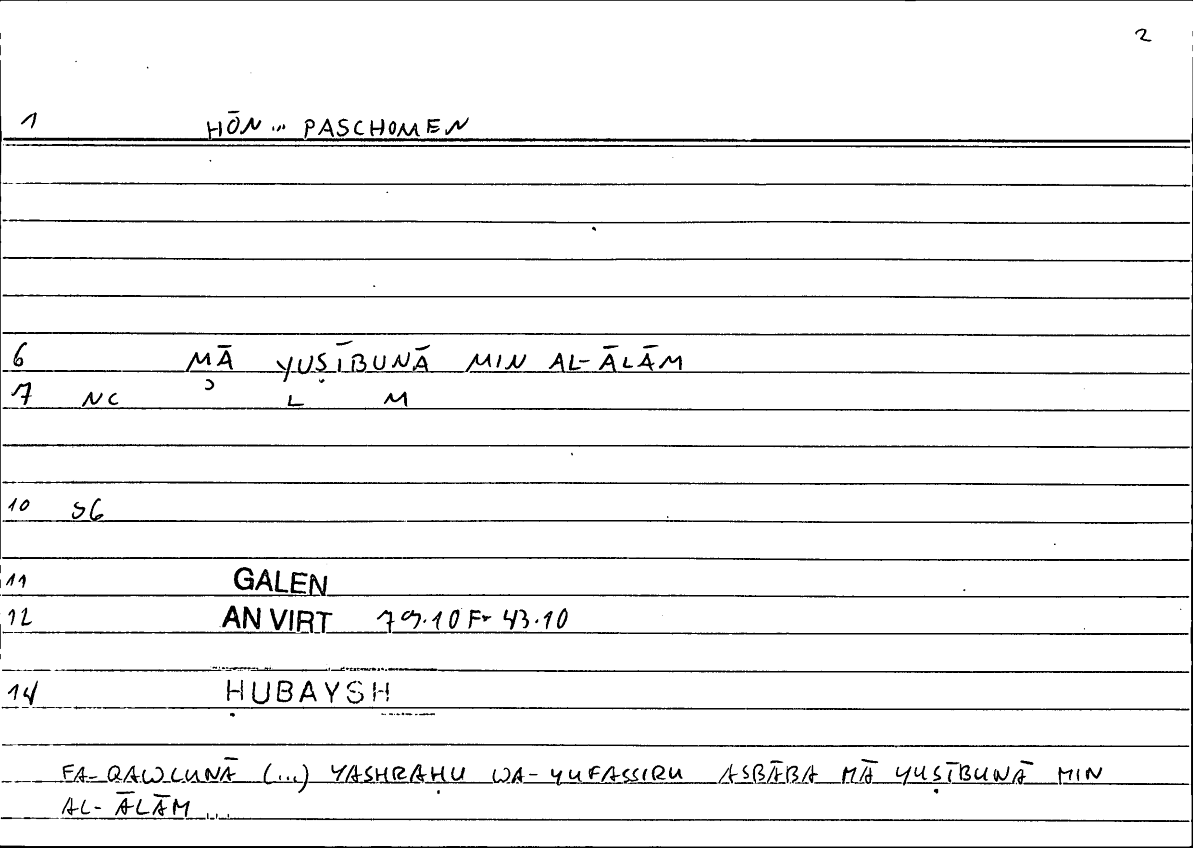 2
1 HŌN ... PASCHOMEN
6 MĀ YUṢĪBUNĀ MIN AL-ĀLĀM
7 NC ʾ L M
10 S6
11 GALEN
12 AN VIRT 79.10 Fr 43.10
14 ḤUBAYSH
FA-QAWLUNĀ (...) YASHRAḤU WA-YUFASSIRU ASBĀBA MĀ YUṢĪBUNĀ MIN
AL-ĀLĀM ...